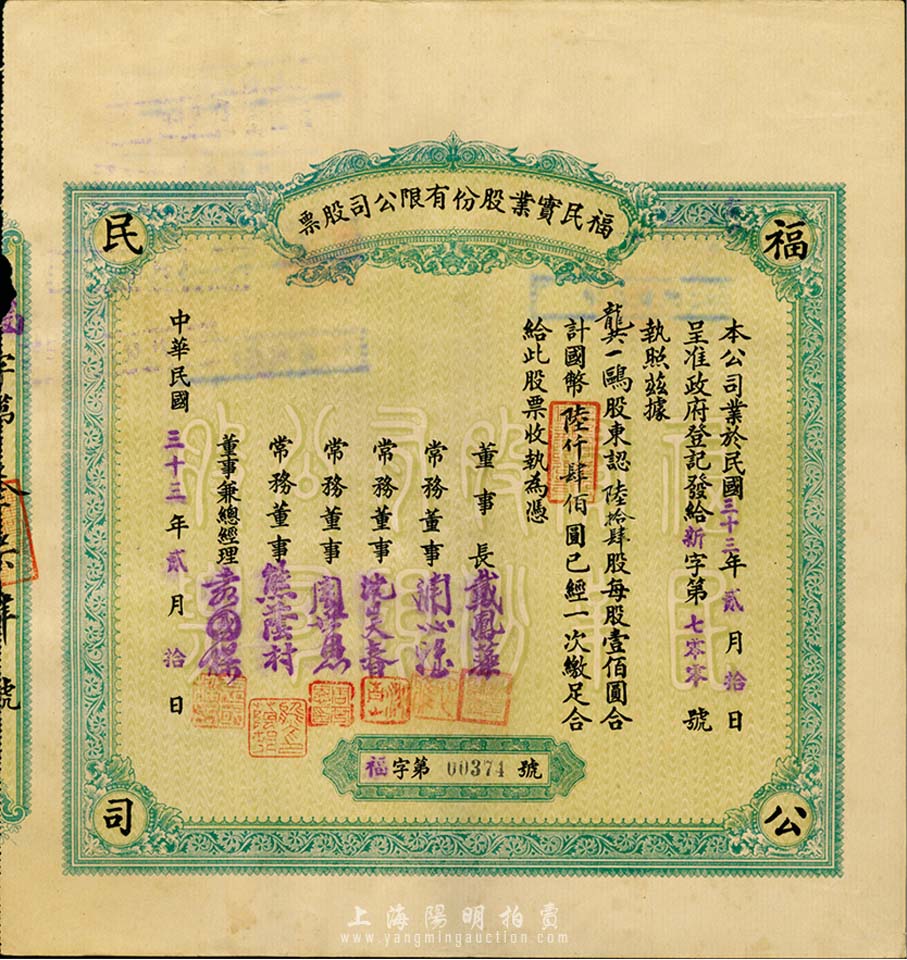 福民實業股份有限公司股票
福
民
公
司
本公司業於民國三十三年貳月拾日
呈准政府登記發給新字第七零零號
執照茲據
龔一鷗股東認陸拾肆股每股壹佰圓合
計國幣陸仟肆佰圓已經一次繳足合
給此股票收執為憑
董事長戴鳳華
常務董事
常務董事沈天春
常務董事
常務董事熊蔭村
董事兼總經理
中華民國三十三年貳月拾日
福字第00374號
字第
號
上海陽明拍賣
www.yangmingauction.com